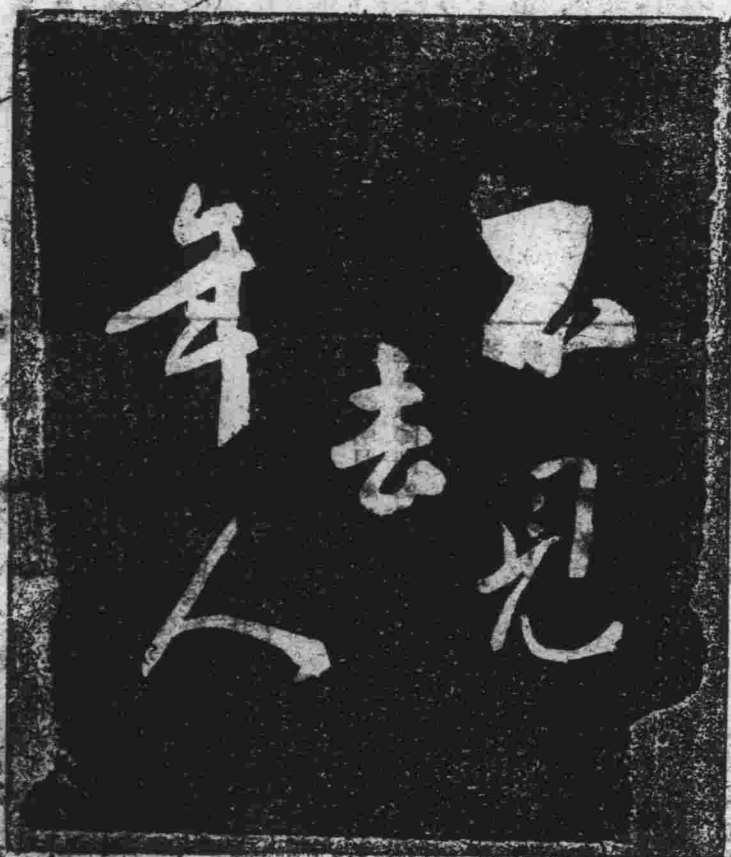 不見
去
年人